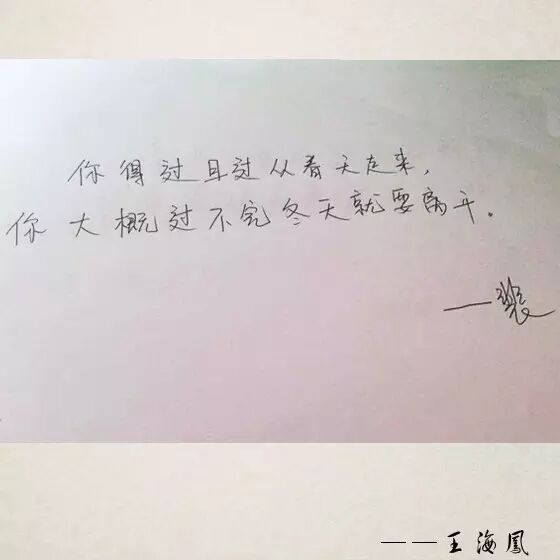 你得过且过从春天走来，
你大概过不完冬天就要离开。
—裴
——王海凤